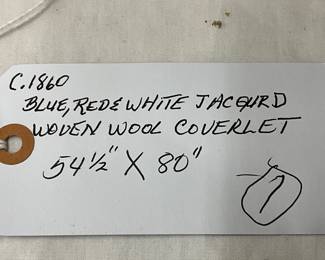 C.1860
BLUE, RED & WHITE JACQURD
WOVEN WOOL COVERLET
54 1/2" X 80"
1